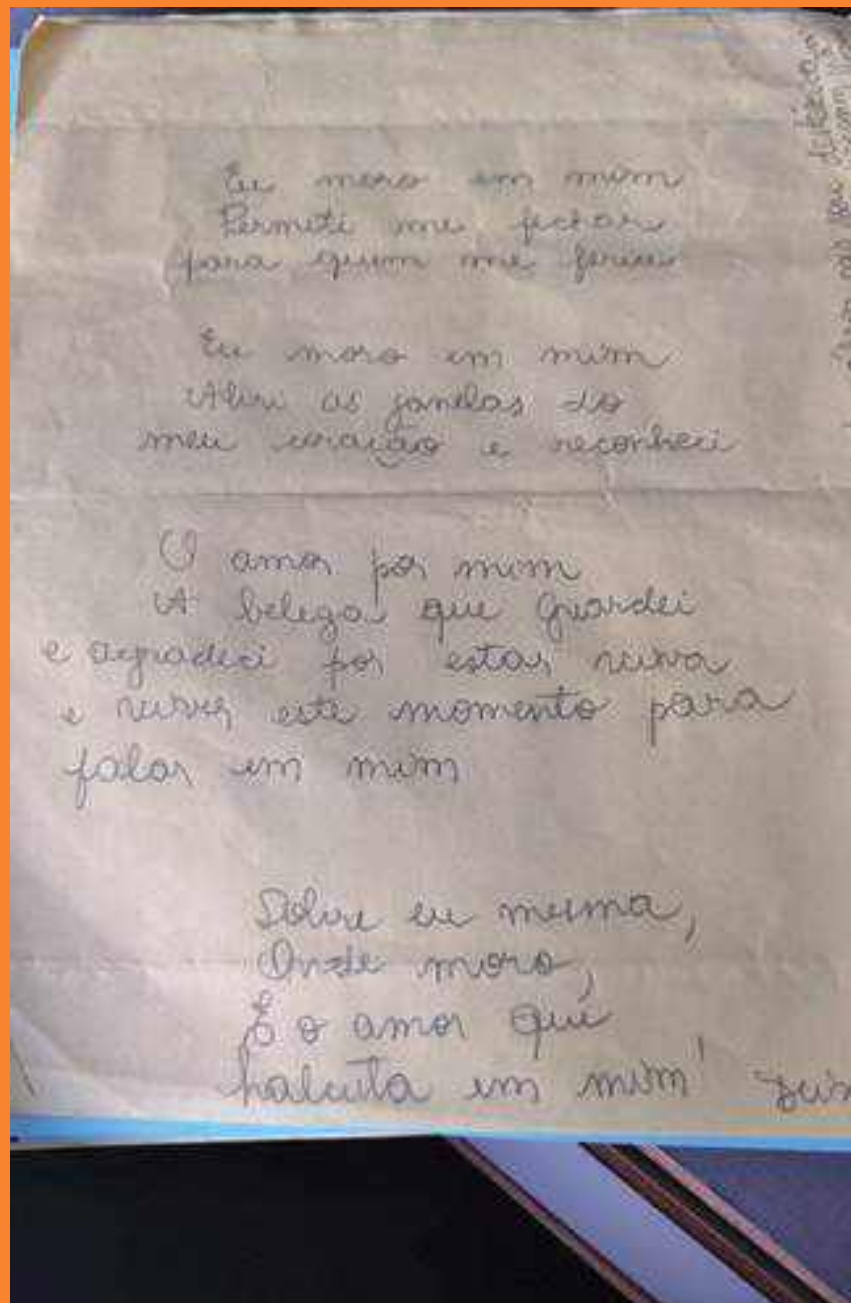 Eu moro em mim
Permiti me fechar
para quem me feriu
Eu moro em mim
Abri as janelas do
meu coração e reconheci
O amor por mim
A beleza que guardei
e agradeci por estar viva
e viver este momento para
falar em mim
Sobre eu mesma,
Onde moro,
É o amor que
habita em mim!